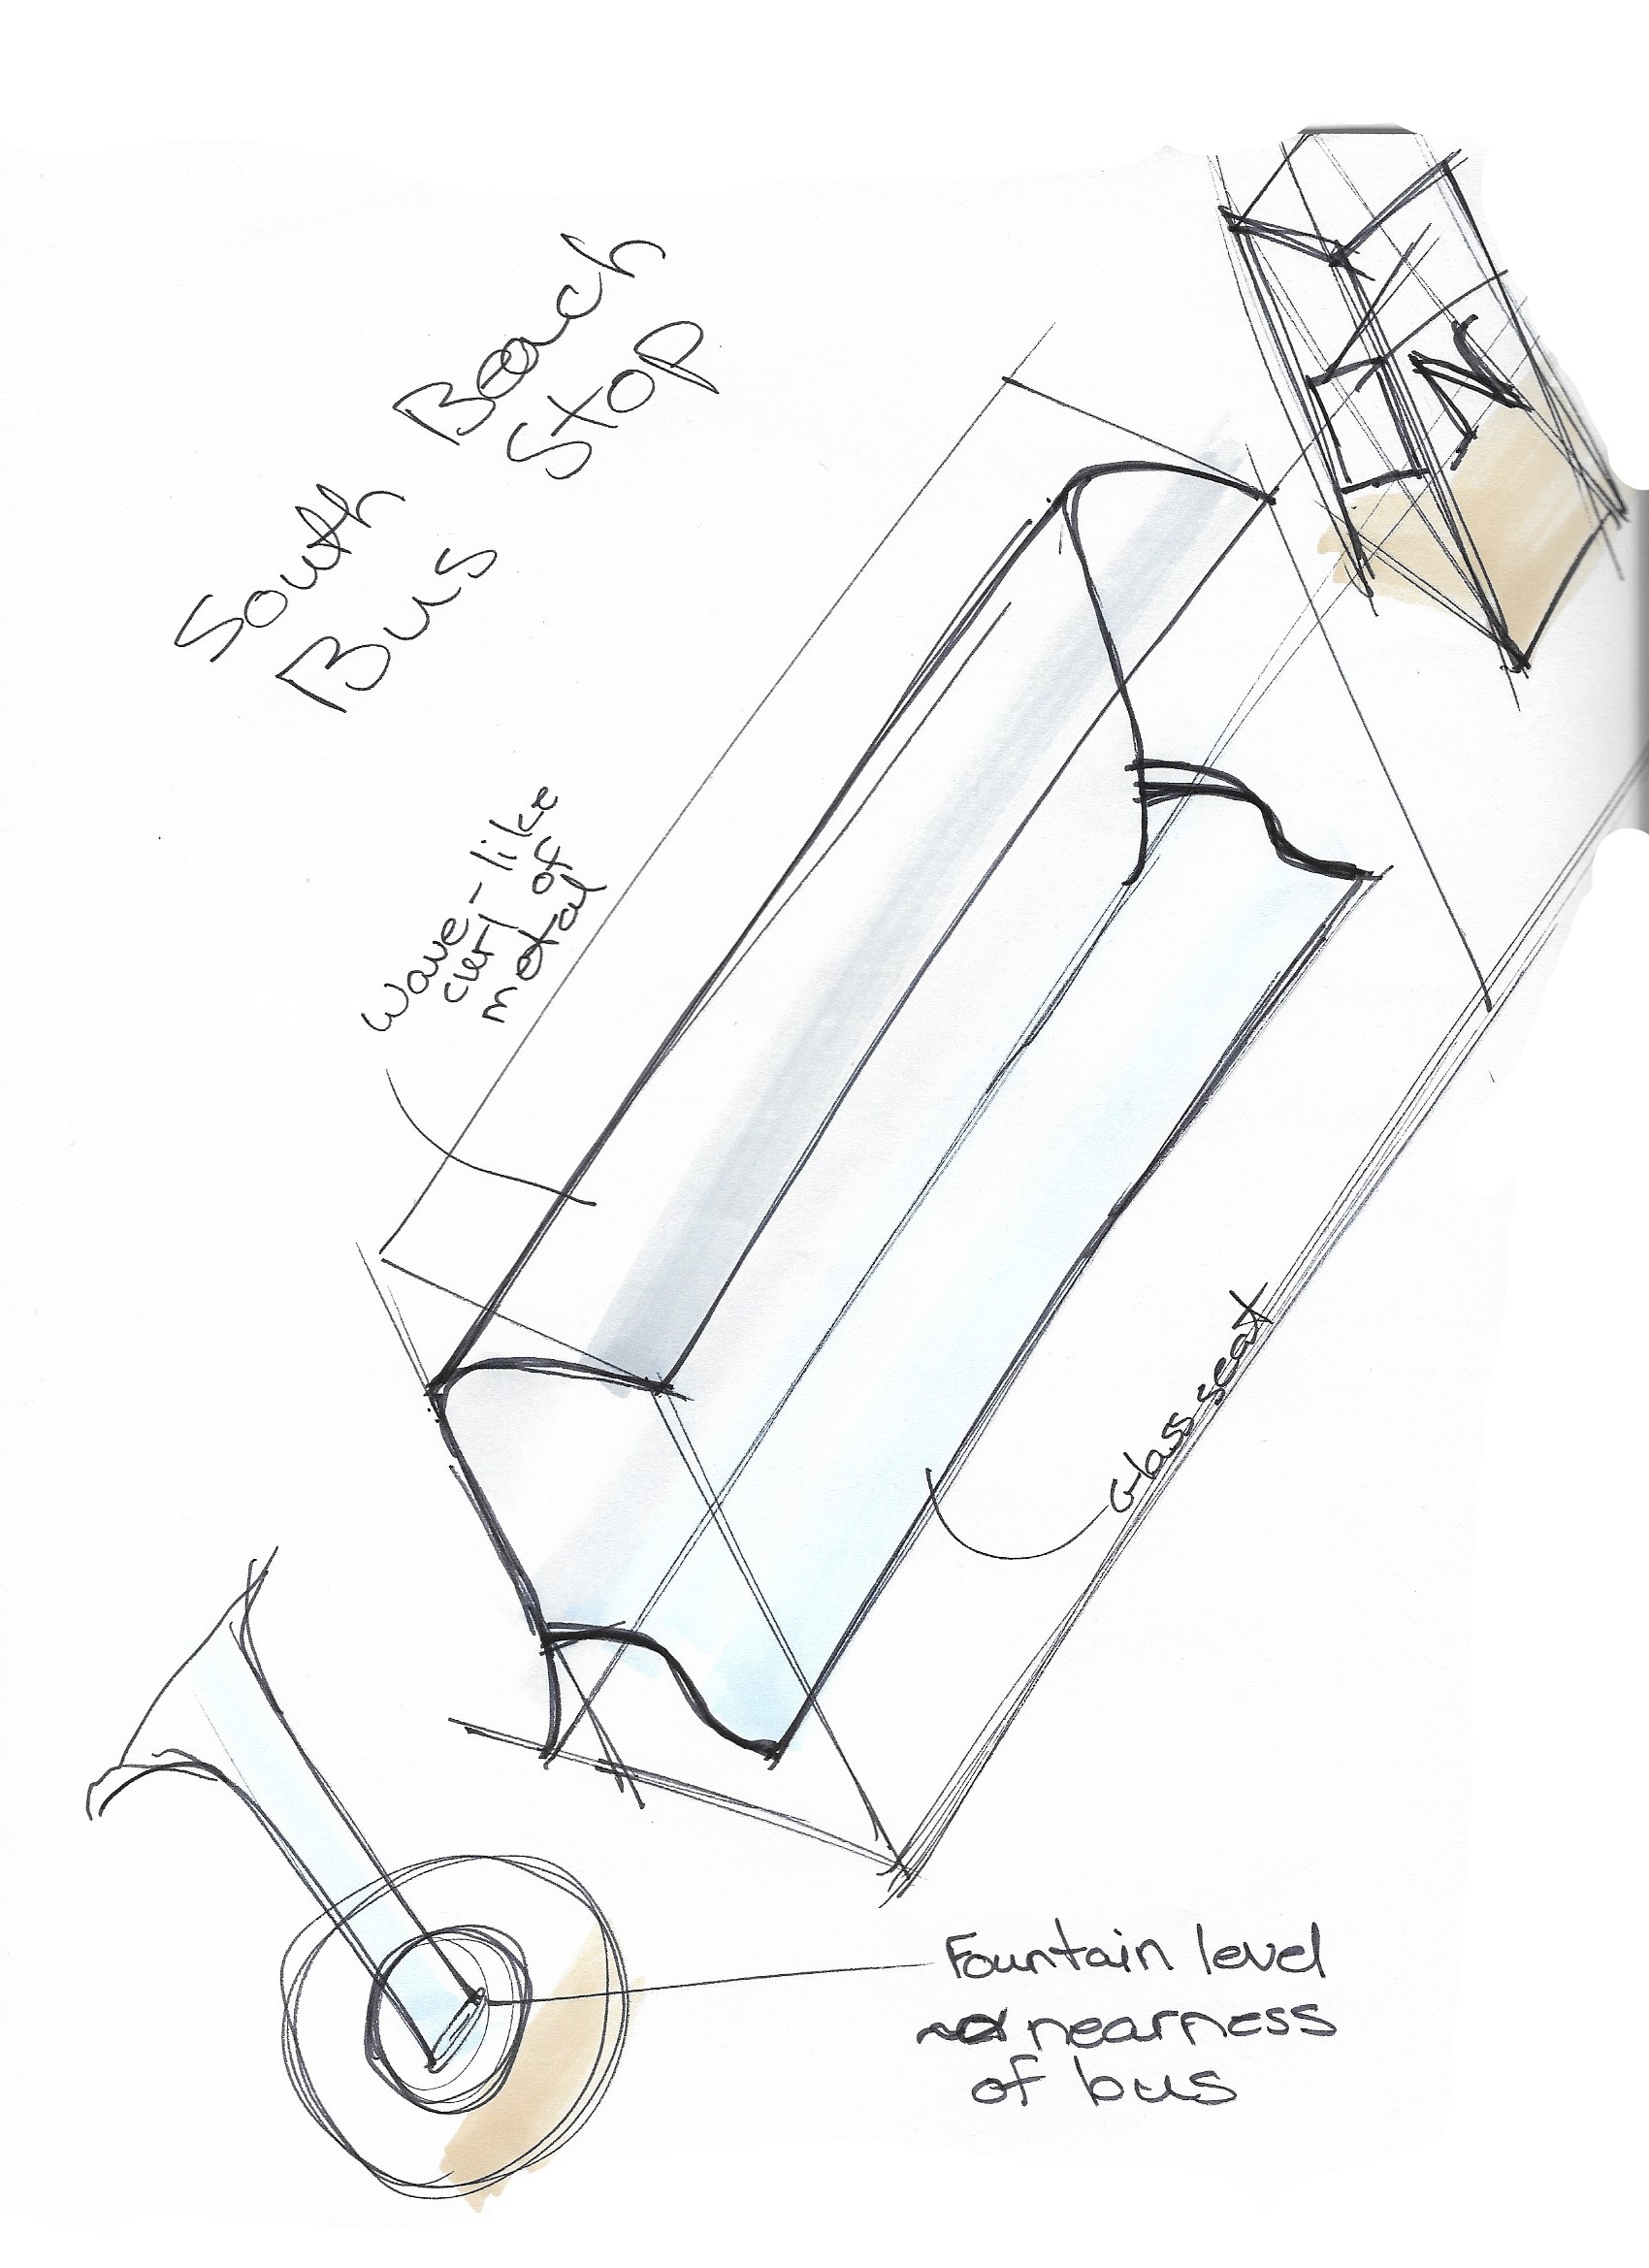 South Beach
Bus Stop
Wave-like
curl of
metal
Glass seat
Fountain level
~α nearness
of bus